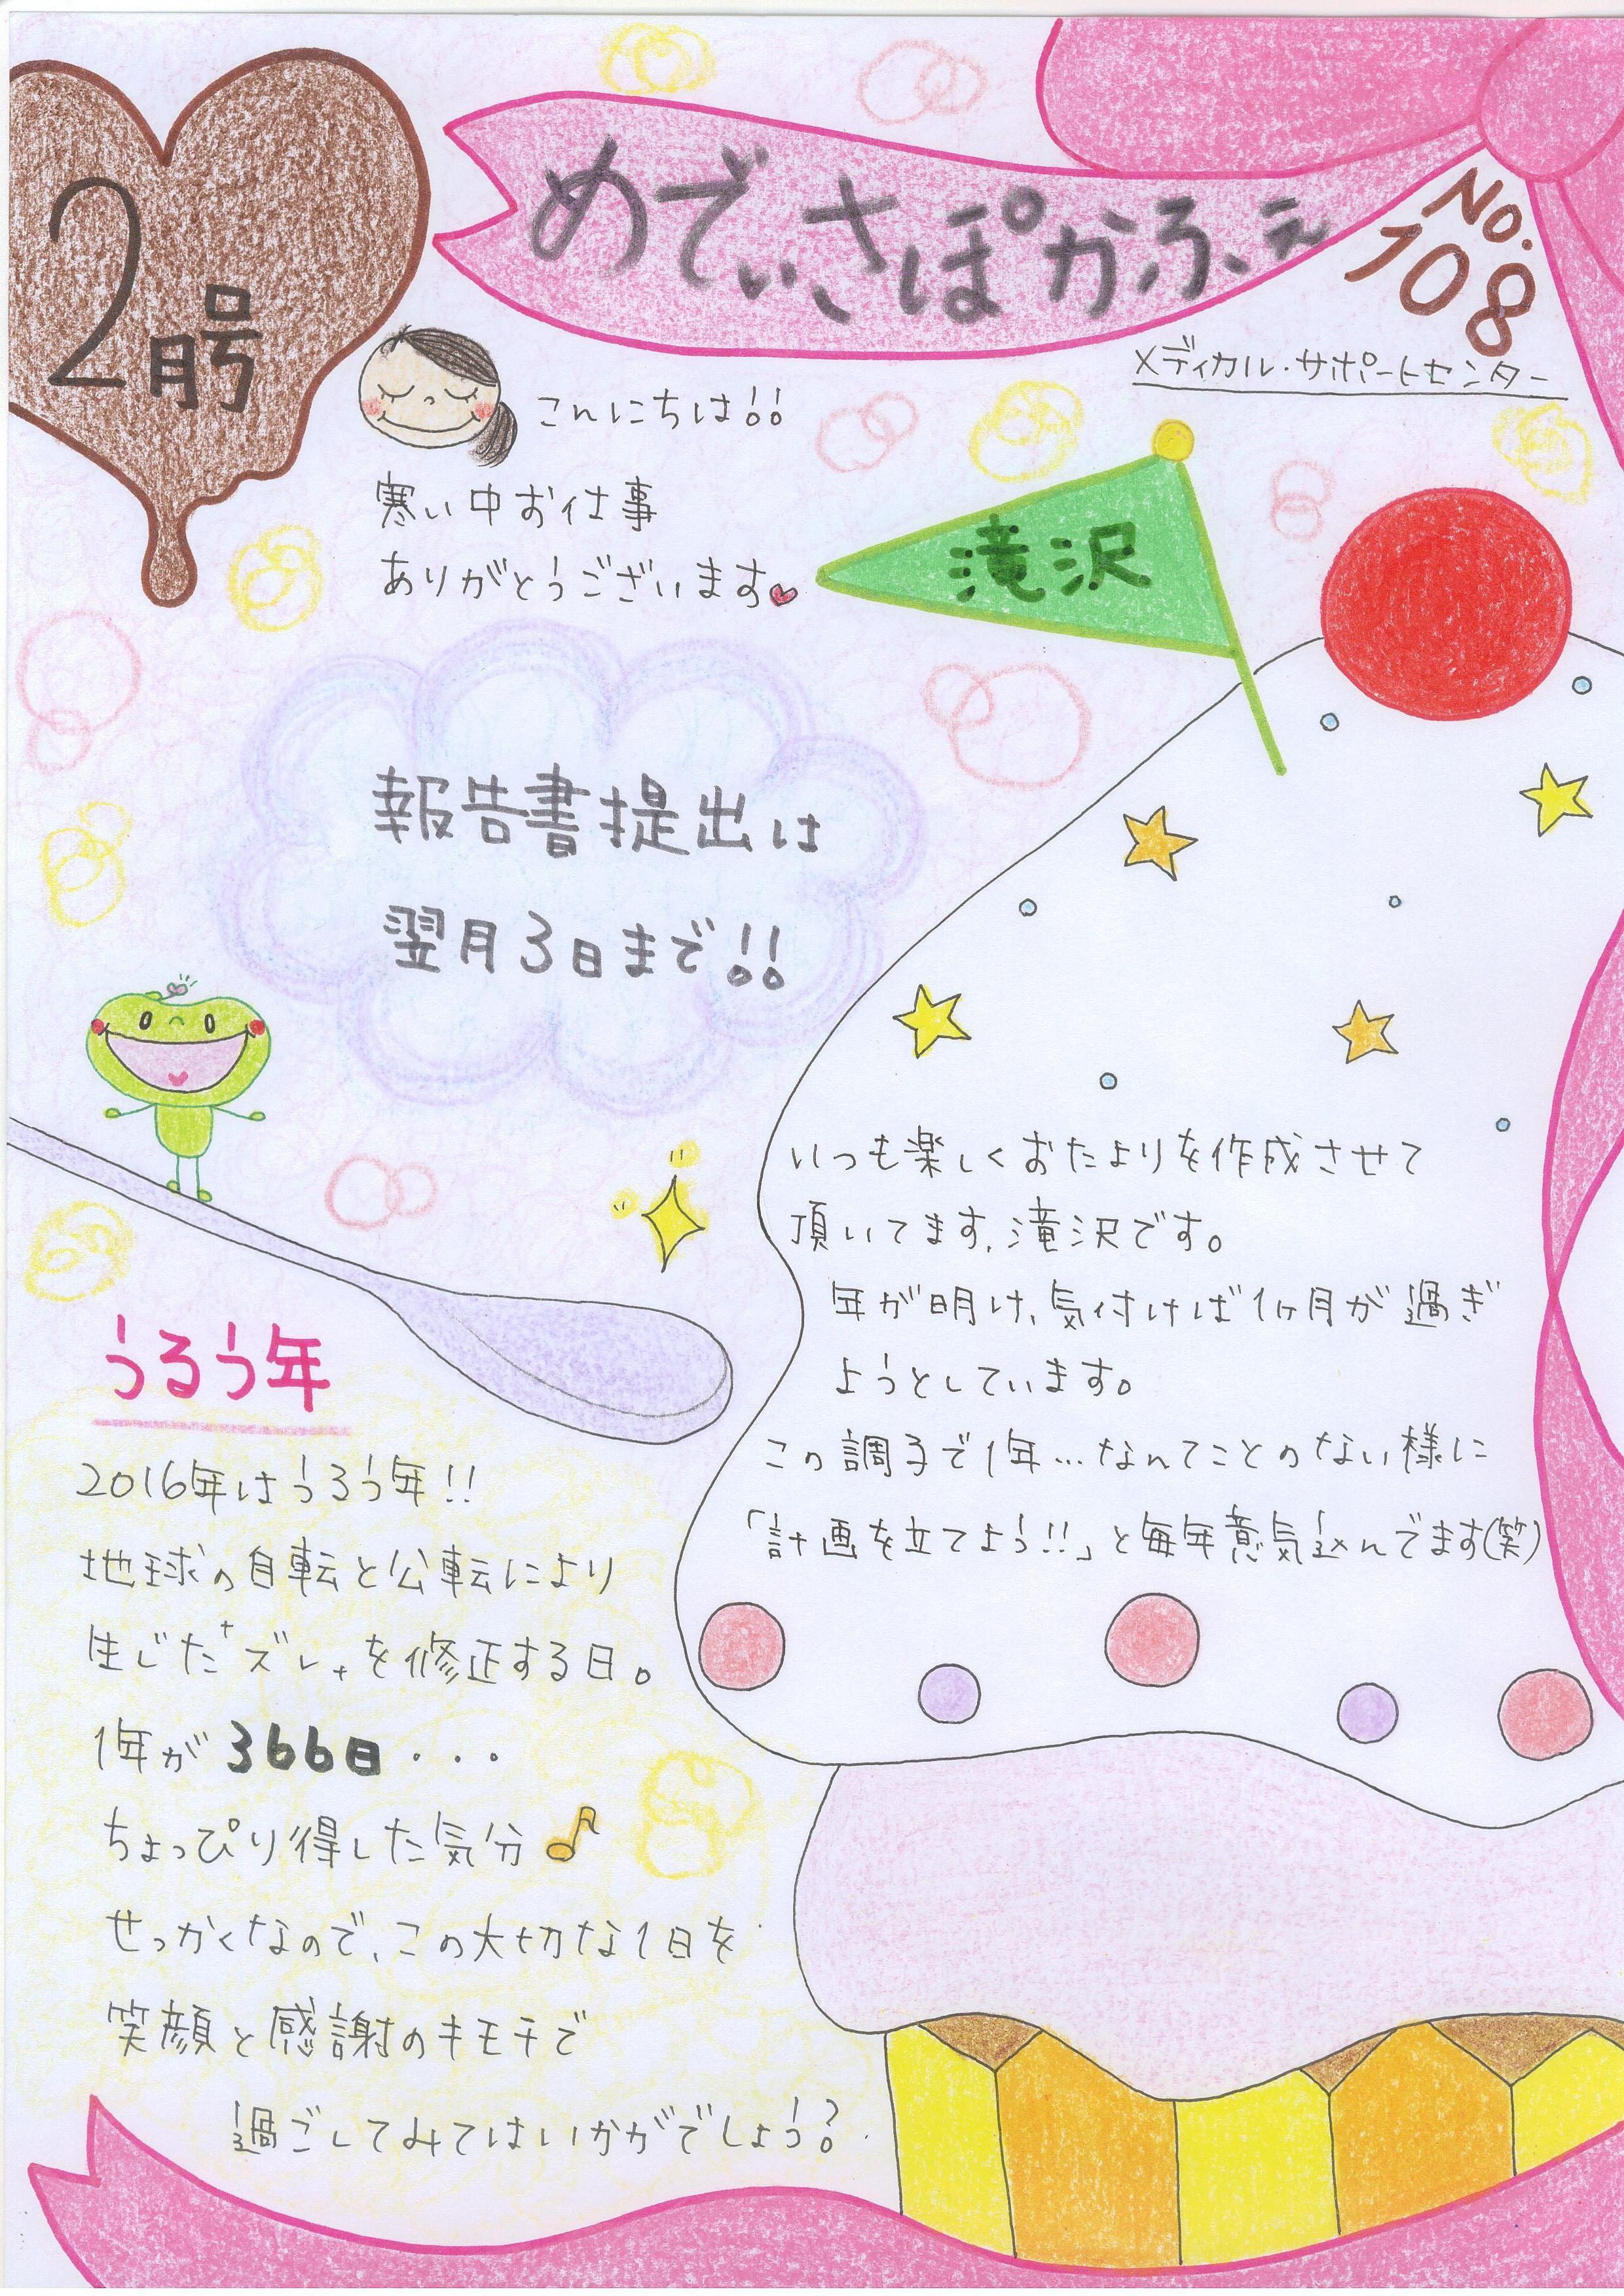 2月号
めでぃさぽかふぇ
No.108
メディカル・サポートセンター
こんにちは!!
寒い中お仕事
ありがとうございます
滝沢
報告書提出は
翌月3日まで!!
いつも楽しくおたよりを作成させて
頂いてます、滝沢です。
年が明け、気付けば1ヶ月が過ぎ
ようとしています。
この調子で1年…なんてことのない様に
「計画を立てよう!!」と毎年意気込んでます(笑)
うるう年
2016年はうるう年!!
地球の自転と公転により
生じた"ズレ"を修正する日。
1年が366日・・・
ちょっぴり得した気分♪
せっかくなので、この大切な1日を
笑顔と感謝のキモチで
過ごしてみてはいかがでしょう?